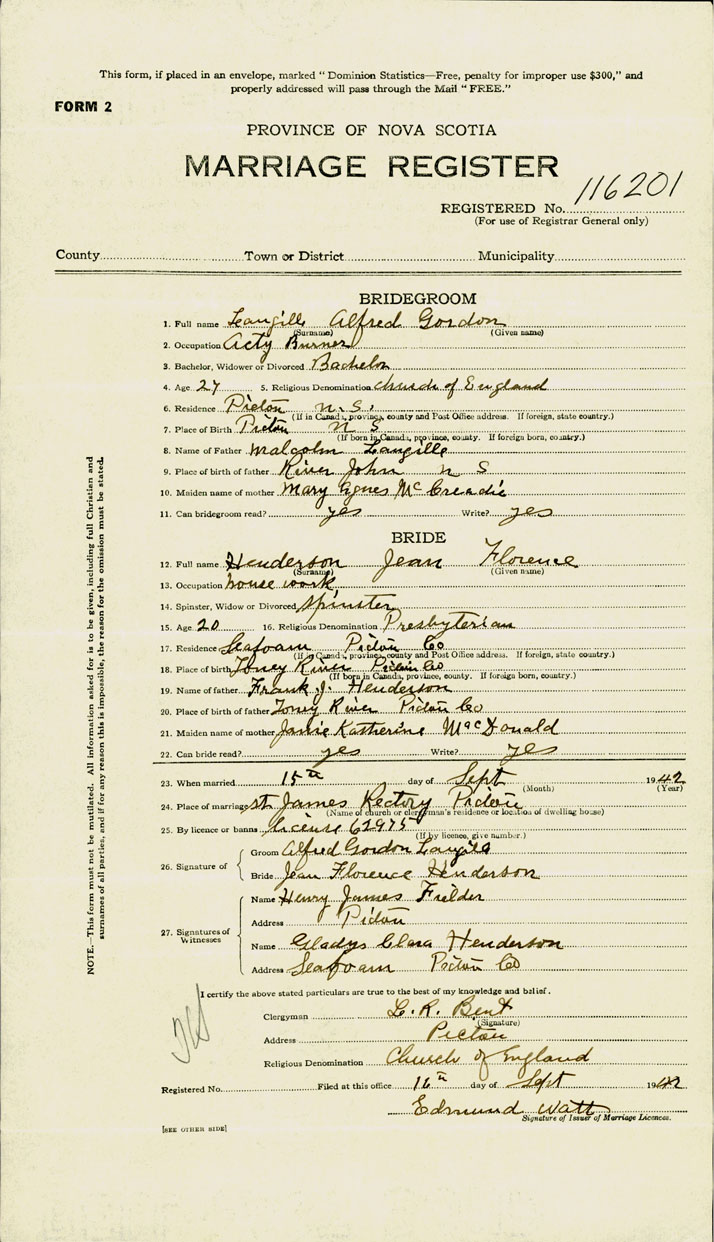 This form, if placed in an envelope, marked " Dominion Statistics—Free, penalty for improper use $300," and
properly addressed will pass through the Mail " FREE."
FORM 2
PROVINCE OF NOVA SCOTIA
MARRIAGE REGISTER
REGISTERED No. 116201
(For use of Registrar General only)
County Town or District Municipality
BRIDEGROOM
1. Full name Langille Alfred Gordon
(Surname) (Given name)
2. Occupation Acty Burner
3. Bachelor, Widower or Divorced Bachelor
4. Age 27 5. Religious Denomination Church of England
6. Residence Pictou N. S.
(If in Canada, province, county and Post Office address. If foreign, state country.)
7. Place of Birth Pictou N S
(If born in Canada, province, county. If foreign born, country.)
8. Name of Father Malcolm Langille
9. Place of birth of father River John N S
10. Maiden name of mother Mary Agnes McCreadie
11. Can bridegroom read? yes Write? yes
BRIDE
12. Full name Henderson Jean Florence
(Surname) (Given name)
13. Occupation house work
14. Spinster, Widow or Divorced spinster
15. Age 20 16. Religious Denomination Presbyterian
17. Residence Seafoam Pictou Co
(If in Canada, province, county and Post Office address. If foreign, state country.)
18. Place of birth Toney River Pictou Co
(If born in Canada, province, county. If foreign born, country.)
19. Name of father Frank J. Henderson
20. Place of birth of father Toney River Pictou Co
21. Maiden name of mother Janie Katherine MacDonald
22. Can bride read? yes Write? yes
23. When married 15th day of Sept 1942
(Month) (Year)
24. Place of marriage St James Rectory Pictou
(Name of church or clergyman's residence or location of dwelling house)
25. By licence or banns license 62975
(If by licence, give number.)
26. Signature of Groom Alfred Gordon Langille
Bride Jean Florence Henderson
27. Signatures of Witnesses Name Henry James Fielder
Address Pictou
Name Gladys Clara Henderson
Address Seafoam Pictou Co
I certify the above stated particulars are true to the best of my knowledge and belief.
Clergyman L. R. Bent
(Signature)
Address Pictou
Religious Denomination Church of England
Registered No. Filed at this office 16th day of Sept 1942
Edmund Watt
Signature of Issuer of Marriage Licences.
[SEE OTHER SIDE]
NOTE.—This form must not be mutilated. All information asked for is to be given, including full Christian and
surnames of all parties, and if for any reason this is impossible, the reason for the omission must be stated.